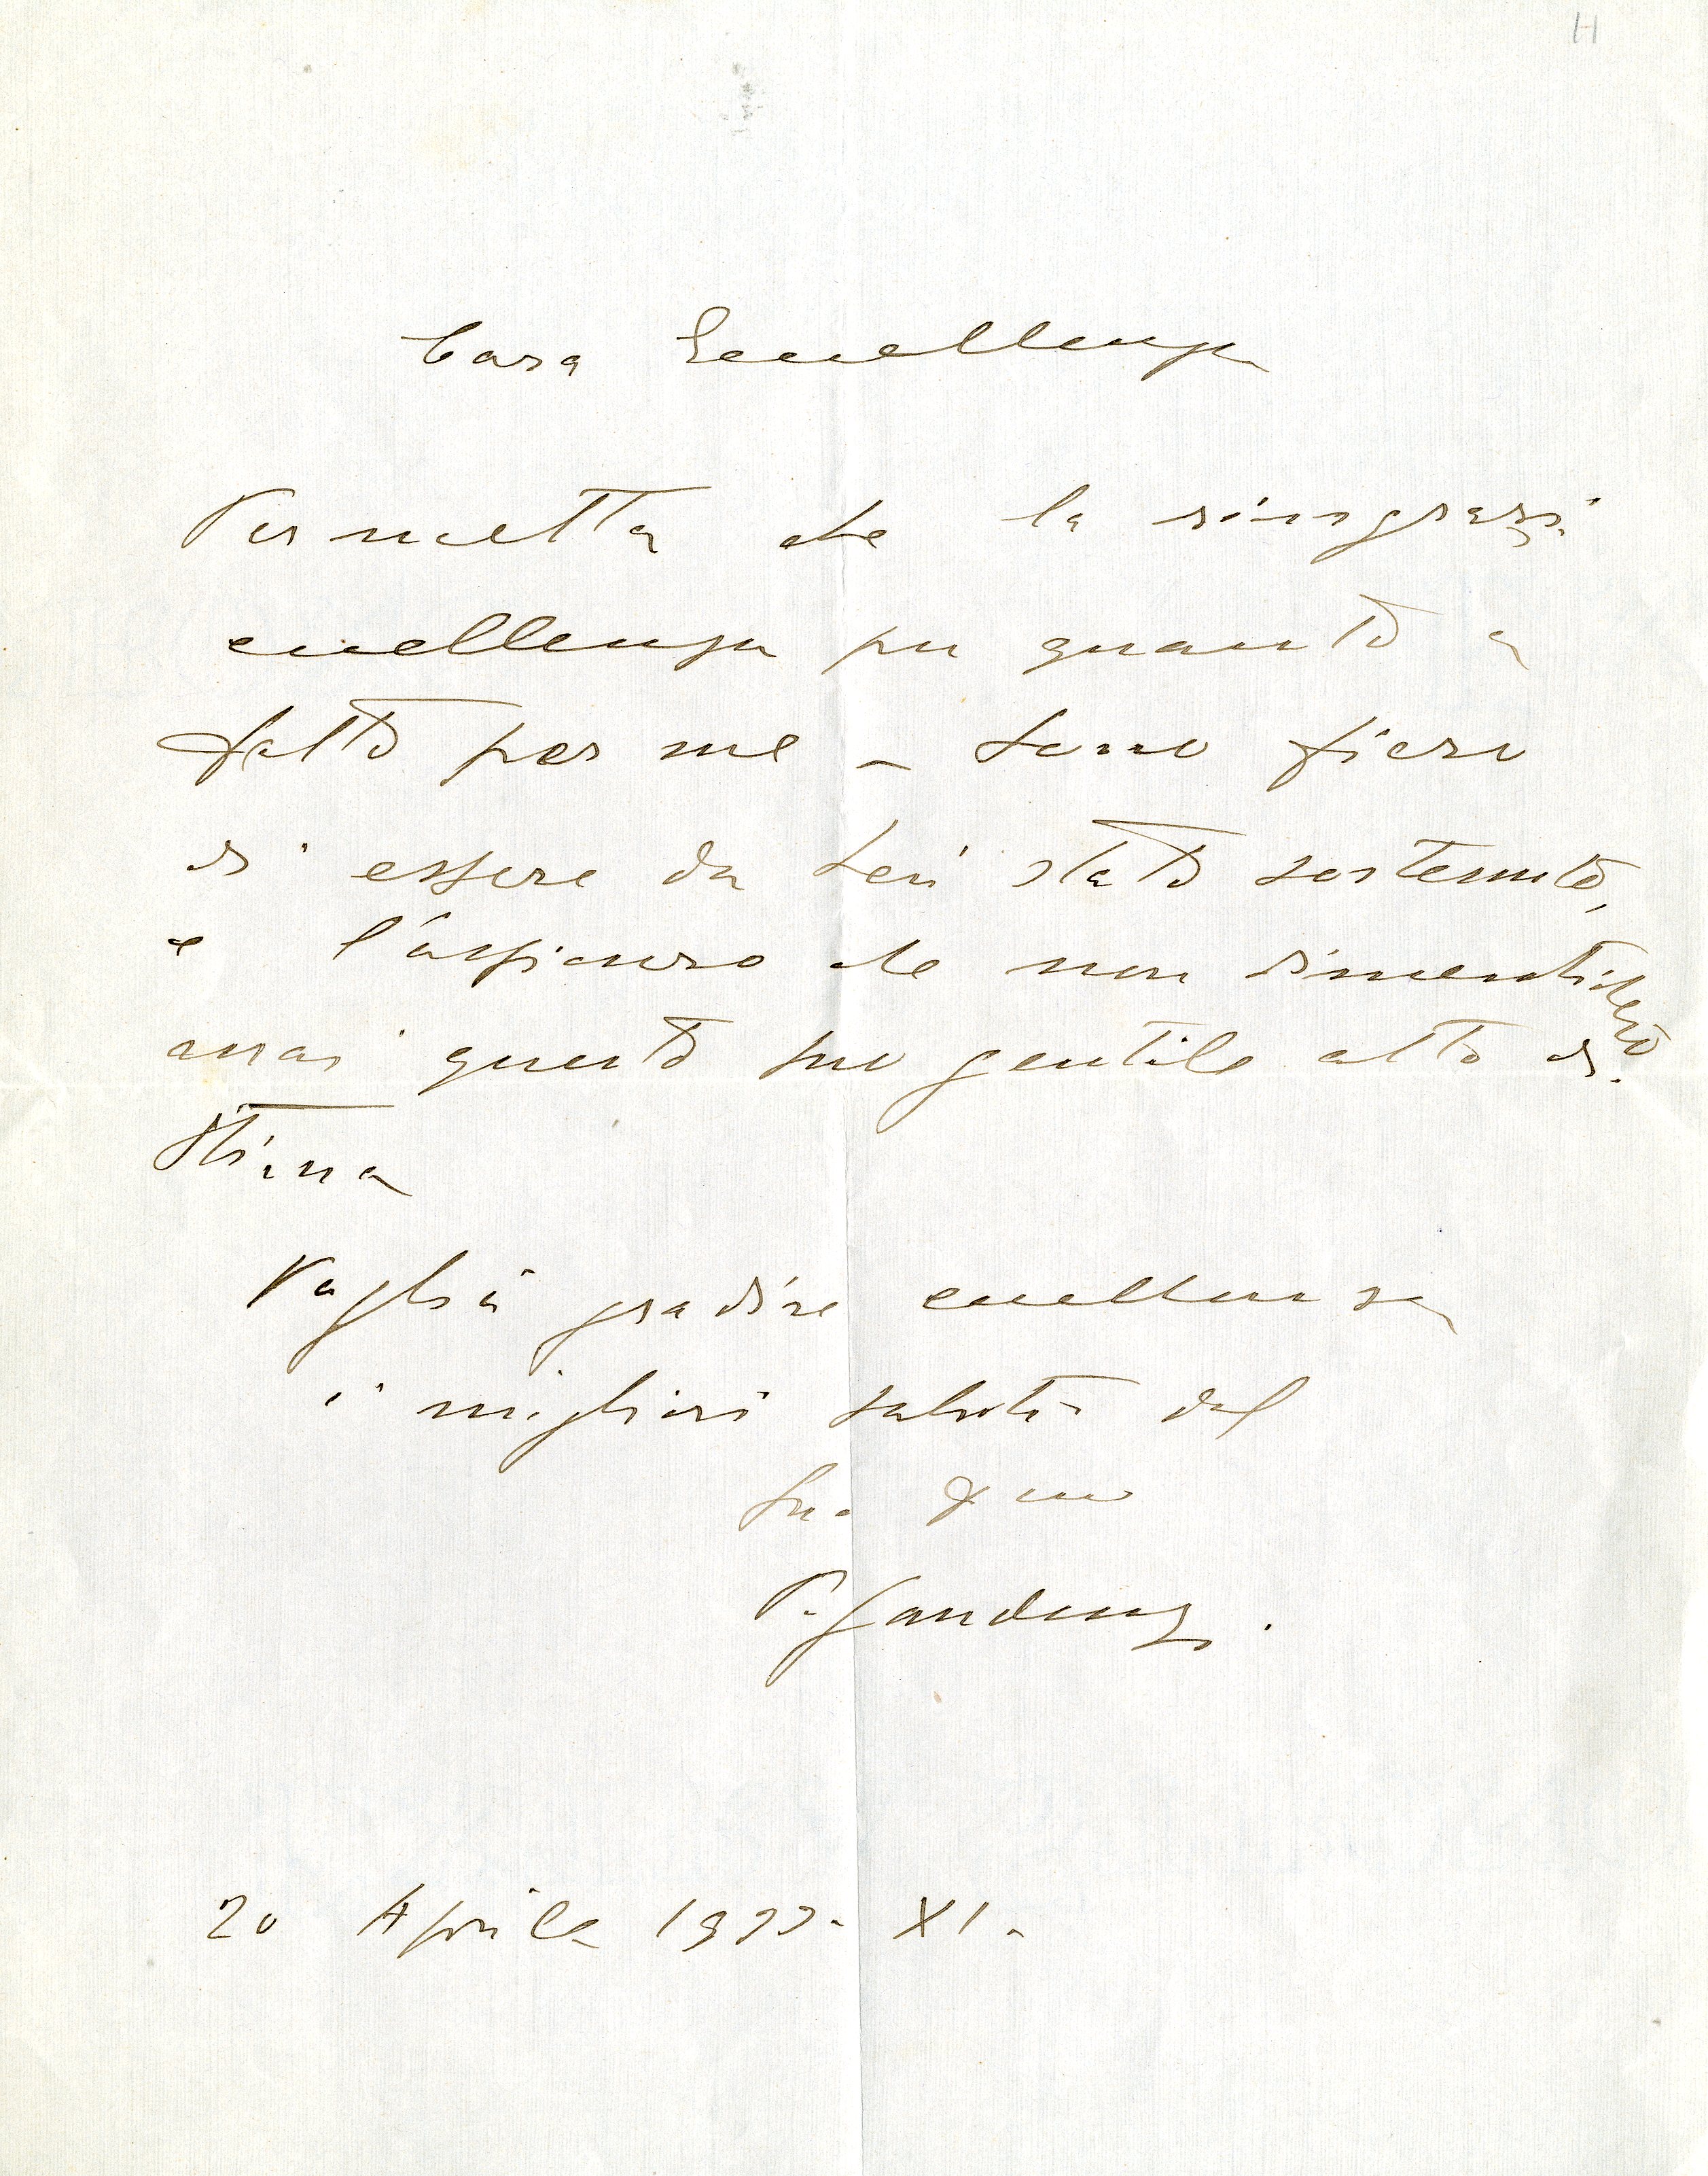 H
Cara Eccellenza
Permetta che la ringrazi
eccellenza per quanto a
fatto per me – Sono fiero
di essere da Lei stato sostenuto,
e l'assicuro che non dimenticherò
mai questo suo gentile atto di
stima
Voglia gradire eccellenza
i migliori saluti dal
suo
P. Gaudenzi.
20 Aprile 1933. XI.